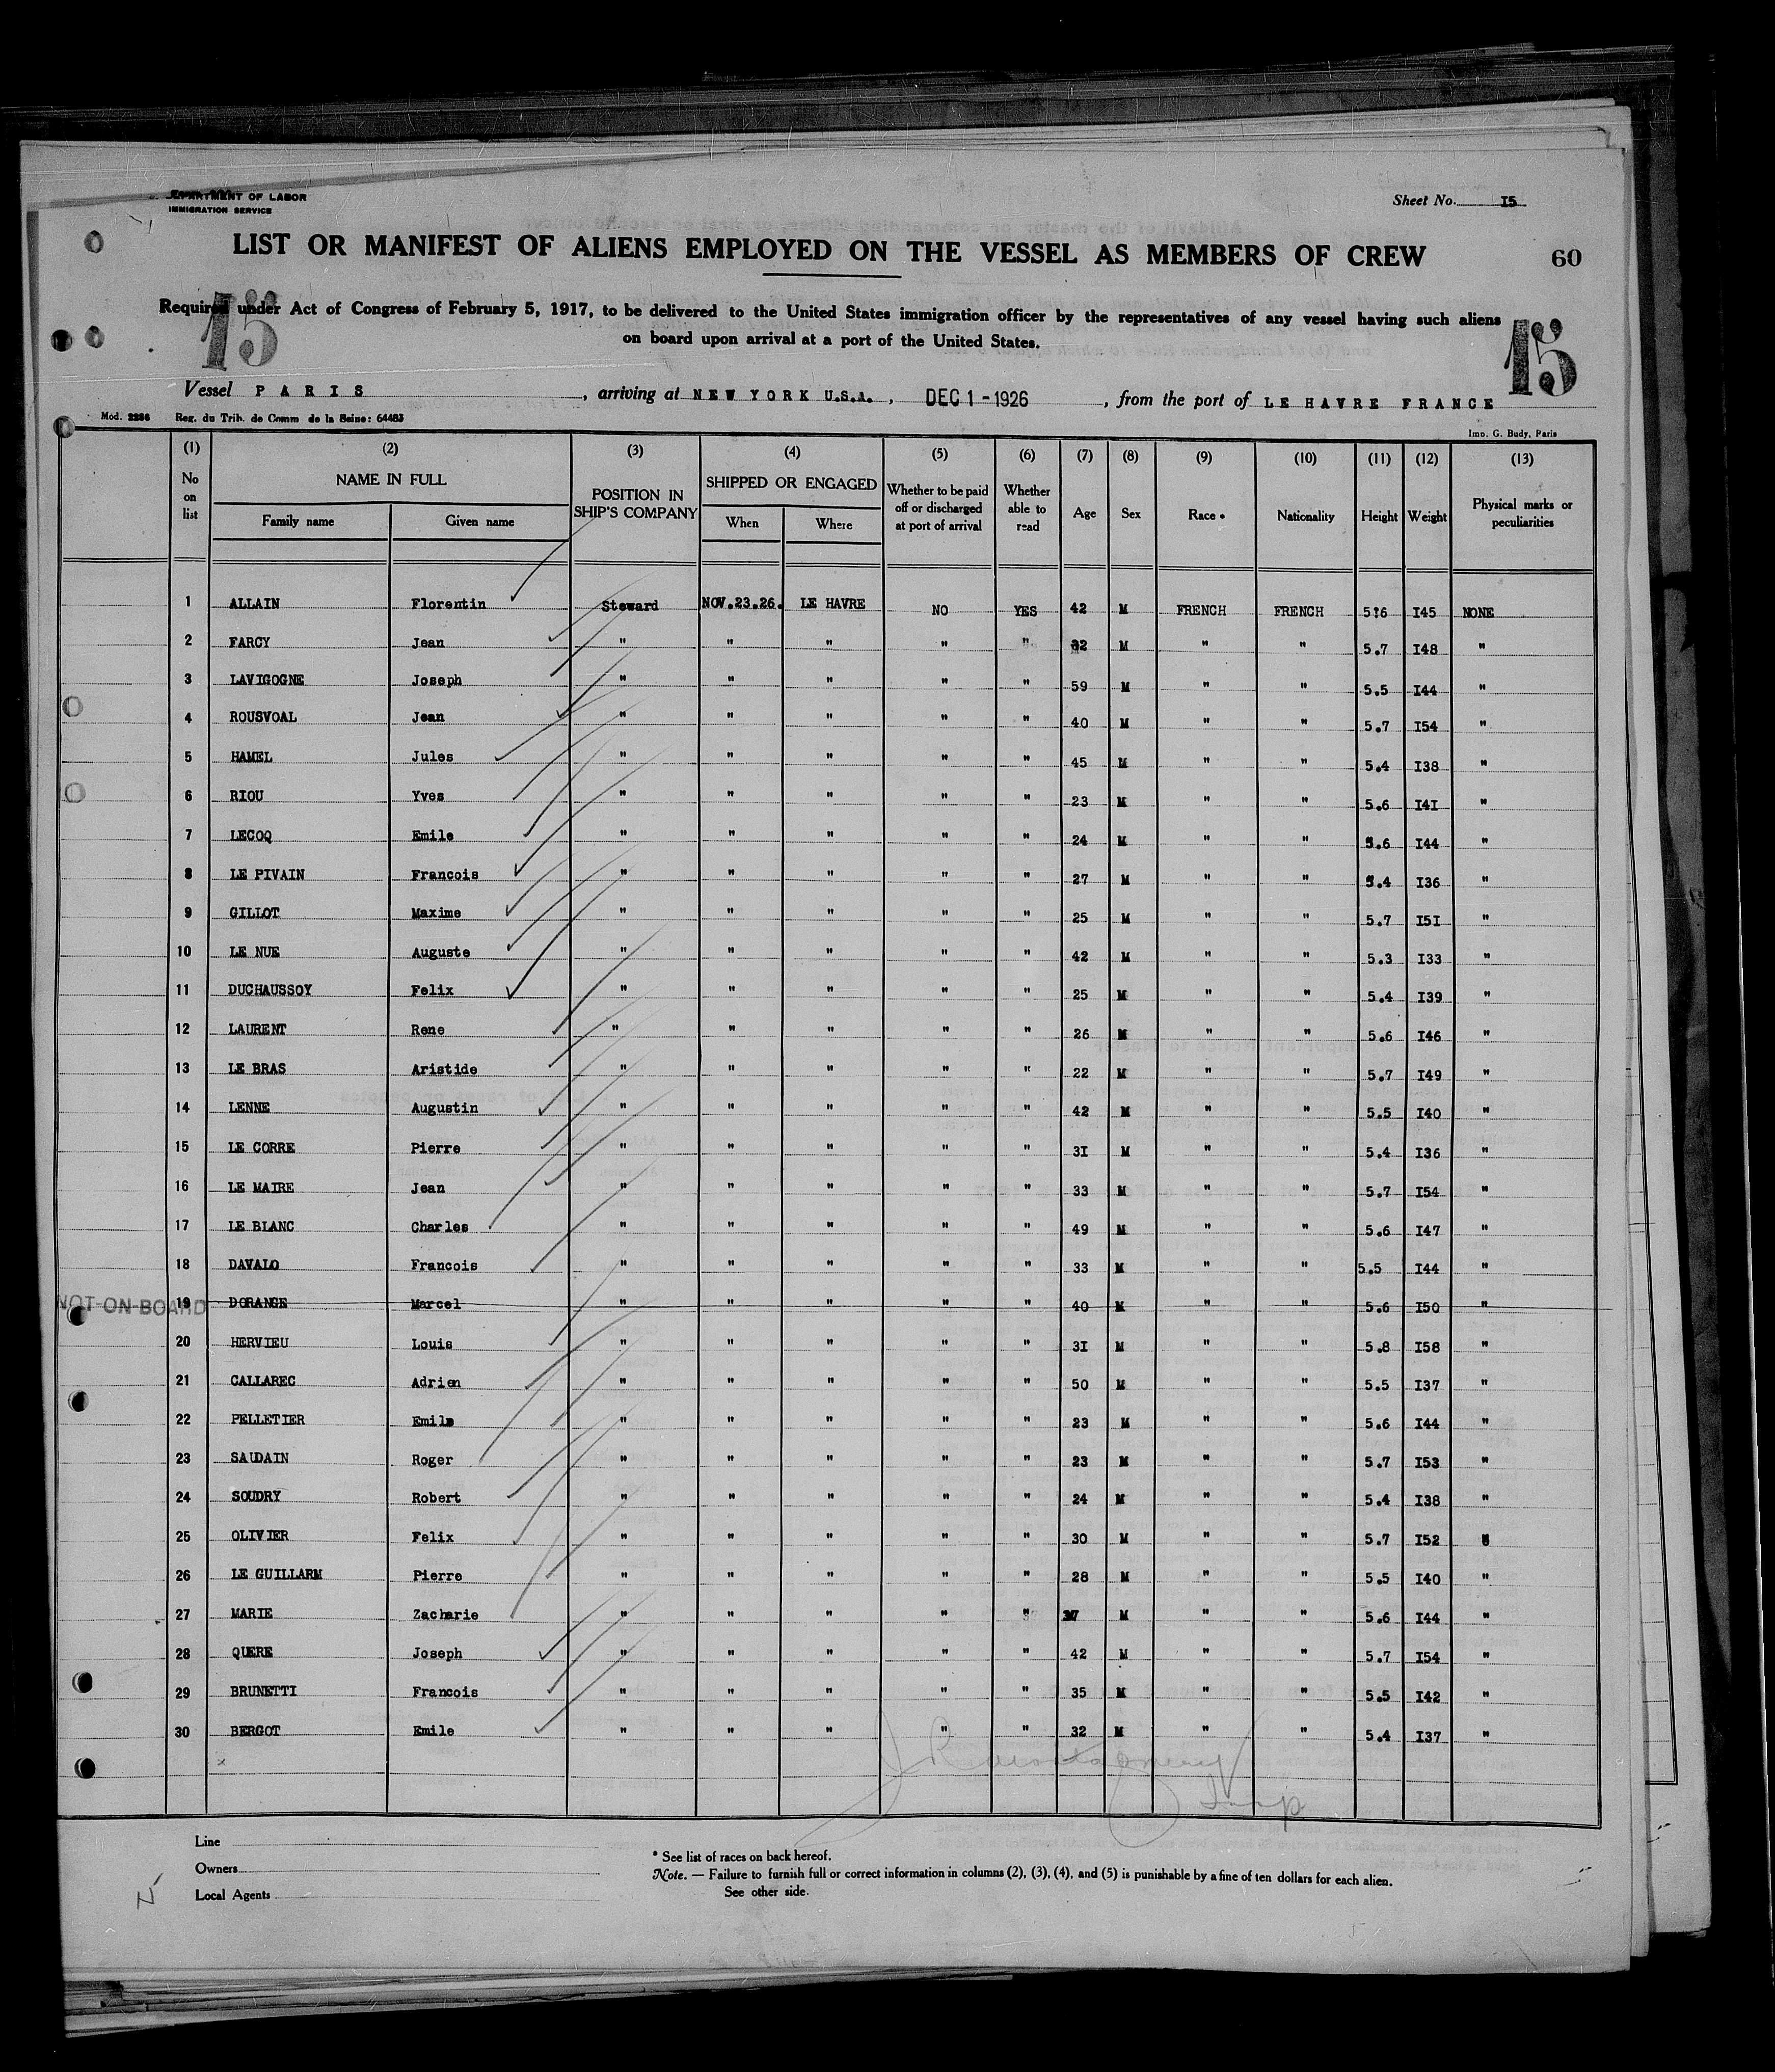 DEPARTMENT OF LABOR
IMMIGRATION SERVICE
Sheet No. I5
LIST OR MANIFEST OF ALIENS EMPLOYED ON THE VESSEL AS MEMBERS OF CREW
60
Required under Act of Congress of February 5, 1917, to be delivered to the United States immigration officer by the representatives of any vessel having such aliens
on board upon arrival at a port of the United States.
15
15
Vessel PARIS, arriving at NEW YORK U.S.A., DEC 1 - 1926, from the port of LE HAVRE FRANCE
Mod. 2286 Reg. du Trib. de Comm de la Seine: 64483
Imp. G. Budy, Paris
(1) (2) (3) (4) (5) (6) (7) (8) (9) (10) (11) (12) (13)
No on list NAME IN FULL Family name Given name POSITION IN SHIP'S COMPANY SHIPPED OR ENGAGED When Where Whether to be paid off or discharged at port of arrival Whether able to read Age Sex Race * Nationality Height Weight Physical marks or peculiarities
1 ALLAIN Florentin Steward NOV.23.26. LE HAVRE NO YES 42 M FRENCH FRENCH 5:6 I45 NONE
2 FARCY Jean " " " " " 32 M " " 5.7 I48 "
3 LAVIGOGNE Joseph " " " " " 59 M " " 5.5 I44 "
4 ROUSVOAL Jean " " " " " 40 M " " 5.7 I54 "
5 HAMEL Jules " " " " " 45 M " " 5.4 I38 "
6 RIOU Yves " " " " " 23 M " " 5.6 I4I "
7 LECOQ Emile " " " " " 24 M " " 5.6 I44 "
8 LE PIVAIN Francois " " " " " 27 M " " 5.4 I36 "
9 GILLOT Maxime " " " " " 25 M " " 5.7 I5I "
10 LE NUE Auguste " " " " " 42 M " " 5.3 I33 "
11 DUCHAUSSOY Felix " " " " " 25 M " " 5.4 I39 "
12 LAURENT Rene " " " " " 26 M " " 5.6 I46 "
13 LE BRAS Aristide " " " " " 22 M " " 5.7 I49 "
14 LENNE Augustin " " " " " 42 M " " 5.5 I40 "
15 LE CORRE Pierre " " " " " 3I M " " 5.4 I36 "
16 LE MAIRE Jean " " " " " 33 M " " 5.7 I54 "
17 LE BLANC Charles " " " " " 49 M " " 5.6 I47 "
18 DAVALO Francois " " " " " 33 M " " 5.5 I44 "
NOT ON BOARD 19 DORANGE Marcel " " " " " 40 M " " 5.6 I50 "
20 HERVIEU Louis " " " " " 3I M " " 5.8 I58 "
21 CALLAREC Adrien " " " " " 50 M " " 5.5 I37 "
22 PELLETIER Emile " " " " " 23 M " " 5.6 I44 "
23 SAUDAIN Roger " " " " " 23 M " " 5.7 I53 "
24 SOUDRY Robert " " " " " 24 M " " 5.4 I38 "
25 OLIVIER Felix " " " " " 30 M " " 5.7 I52 "
26 LE GUILLARM Pierre " " " " " 28 M " " 5.5 I40 "
27 MARIE Zacharie " " " " " 37 M " " 5.6 I44 "
28 QUERE Joseph " " " " " 42 M " " 5.7 I54 "
29 BRUNETTI Francois " " " " " 35 M " " 5.5 I42 "
30 BERGOT Emile " " " " " 32 M " " 5.4 I37 "
Line
Owners
Local Agents
* See list of races on back hereof.
Note. — Failure to furnish full or correct information in columns (2), (3), (4), and (5) is punishable by a fine of ten dollars for each alien.
See other side.